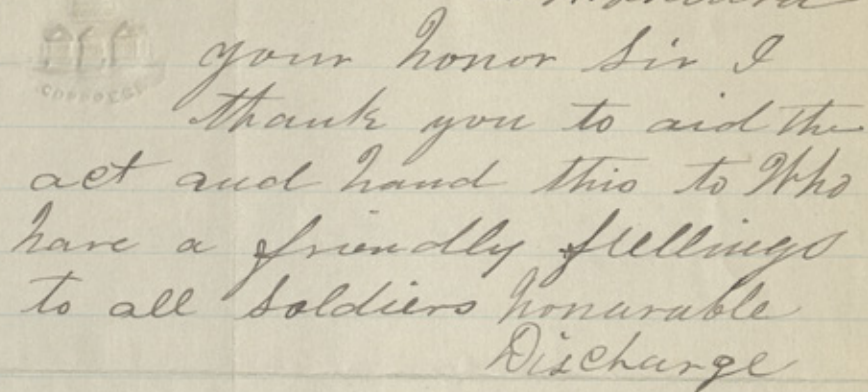 your honor Sir I
thank you to aid the
act and hand this to Who
have a friendly fullings
to all Soldiers honurable
Discharge